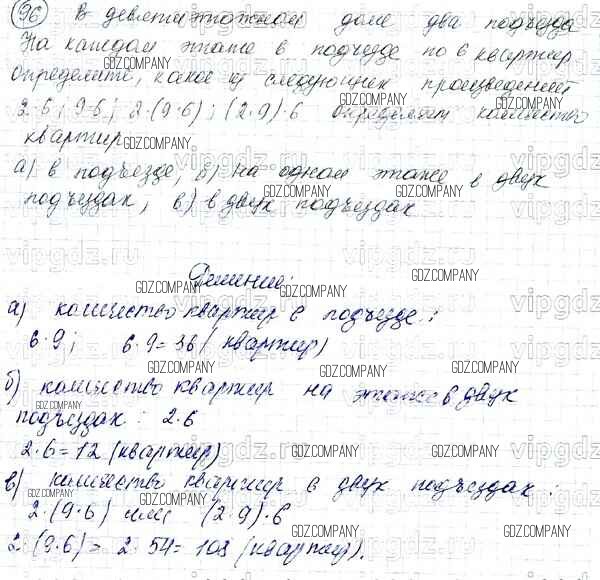 96) В девятиэтажном доме два подъезда
На каждом этаже в подъезде по 6 квартир
Определите, какое из следующих произведений
2·6; 9·6; 2·(9·6); (2·9)·6 определяет количество
квартир
а) в подъезде, б) на одном этаже в двух
подъездах, в) в двух подъездах
Решение:
а) количество квартир в подъезде:
6·9; 6·9=36 (квартир)
б) количество квартир на этаже в двух
подъездах: 2·6
2·6=12 (квартир)
в) количество квартир в двух подъездах:
2·(9·6) или (2·9)·6
2·(9·6)= 2·54= 108 (квартир).
GDZ.COMPANY
vipgdz.ru